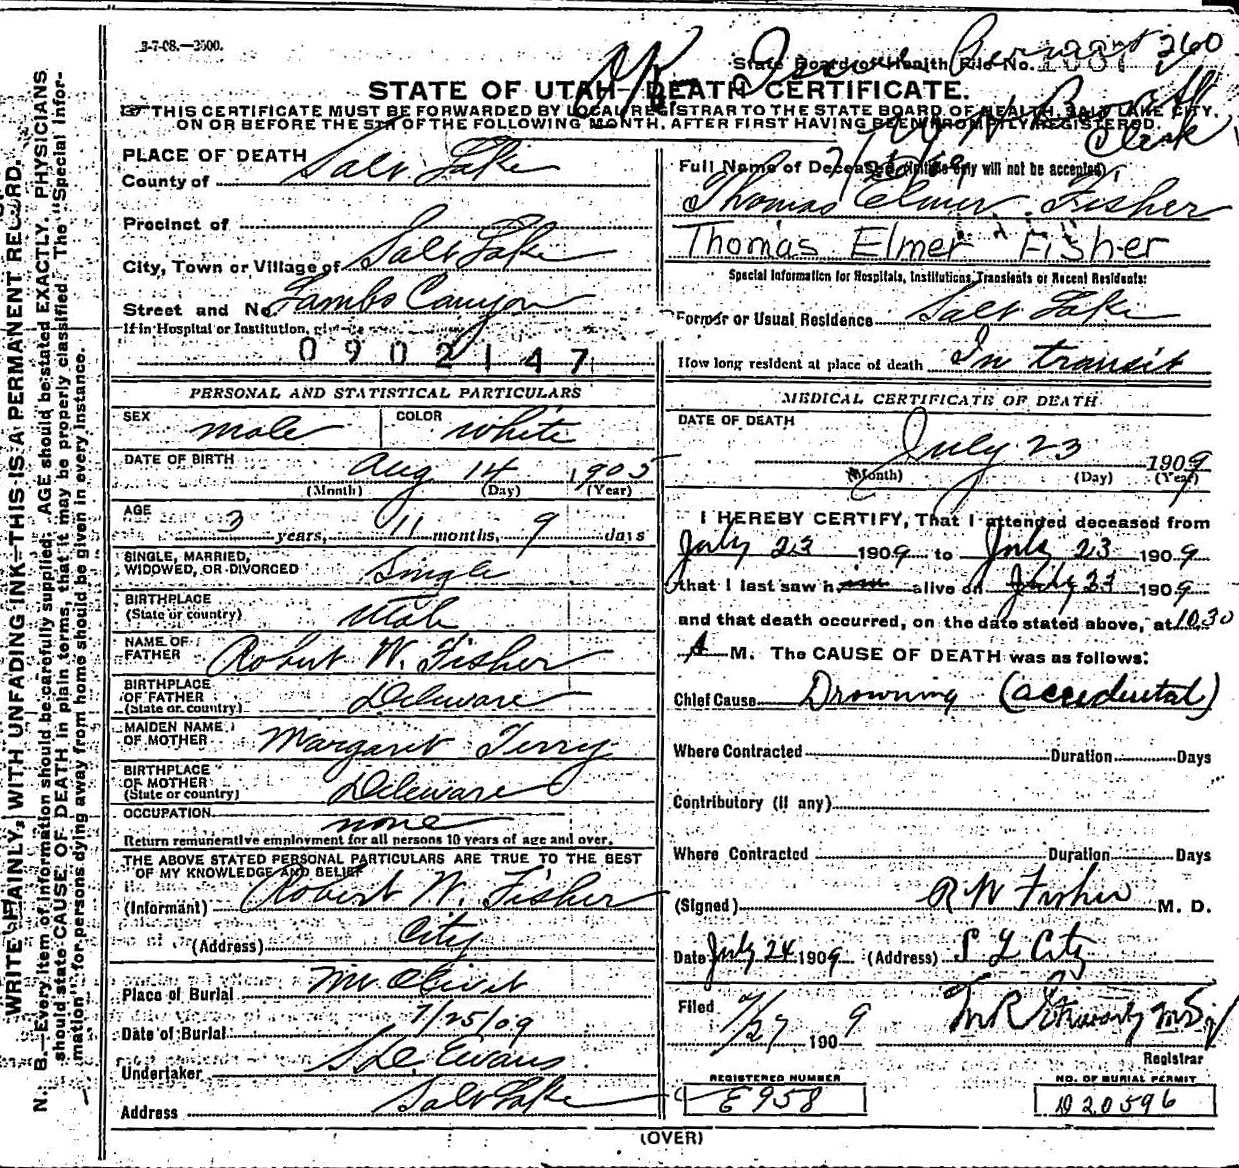 3-7-08.—2500.
OK
260
State Board of Health File No. 1887
STATE OF UTAH—DEATH CERTIFICATE.
THIS CERTIFICATE MUST BE FORWARDED BY LOCAL REGISTRAR TO THE STATE BOARD OF HEALTH, SALT LAKE CITY,
ON OR BEFORE THE 5TH OF THE FOLLOWING MONTH, AFTER FIRST HAVING BEEN PROMPTLY REGISTERED.
Clerk
WRITE PLAINLY, WITH UNFADING INK—THIS IS A PERMANENT RECORD.
N. B.—Every item of information should be carefully supplied. AGE should be stated EXACTLY. PHYSICIANS
should state CAUSE OF DEATH in plain terms, that it may be properly classified. The "Special Infor-
mation" for persons dying away from home should be given in every instance.
PLACE OF DEATH
County of Salt Lake
Precinct of
City, Town or Village of Salt Lake
Street and No. Lambs Canyon
If in Hospital or Institution, give
0902147
PERSONAL AND STATISTICAL PARTICULARS
SEX male COLOR white
DATE OF BIRTH Aug 14 1905
(Month) (Day) (Year)
AGE 3 years, 11 months, 9 days
SINGLE, MARRIED,
WIDOWED, OR DIVORCED Single
BIRTHPLACE
(State or country) Utah
NAME OF
FATHER Robert W. Fisher
BIRTHPLACE
OF FATHER
(State or country) Deleware
MAIDEN NAME
OF MOTHER Margaret Terry
BIRTHPLACE
OF MOTHER
(State or country) Deleware
OCCUPATION none
Return remunerative employment for all persons 10 years of age and over.
THE ABOVE STATED PERSONAL PARTICULARS ARE TRUE TO THE BEST
OF MY KNOWLEDGE AND BELIEF
(Informant) Robert W. Fisher
(Address) City
Place of Burial Mt Olivet
Date of Burial 7/25/09
Undertaker S.D. Evans
Address Salt Lake
Full Name of Deceased (Initials only will not be accepted)
Thomas Elmer Fisher
Thomas Elmer Fisher
Special Information for Hospitals, Institutions, Transients or Recent Residents:
Former or Usual Residence Salt Lake
How long resident at place of death In transit
MEDICAL CERTIFICATE OF DEATH
DATE OF DEATH
July 23 1909
(Month) (Day) (Year)
I HEREBY CERTIFY, That I attended deceased from
July 23 1909 to July 23 1909
that I last saw him alive on July 23 1909
and that death occurred, on the date stated above, at 10.30
A M. The CAUSE OF DEATH was as follows:
Chief Cause Drowning (accidental)
Where Contracted Duration Days
Contributory (if any)
Where Contracted Duration Days
(Signed) R W Fisher M. D.
Date July 24 1909 (Address) S L City
Filed 7/27 1909
Registrar
REGISTERED NUMBER
E958
NO. OF BURIAL PERMIT
D20596
(OVER)